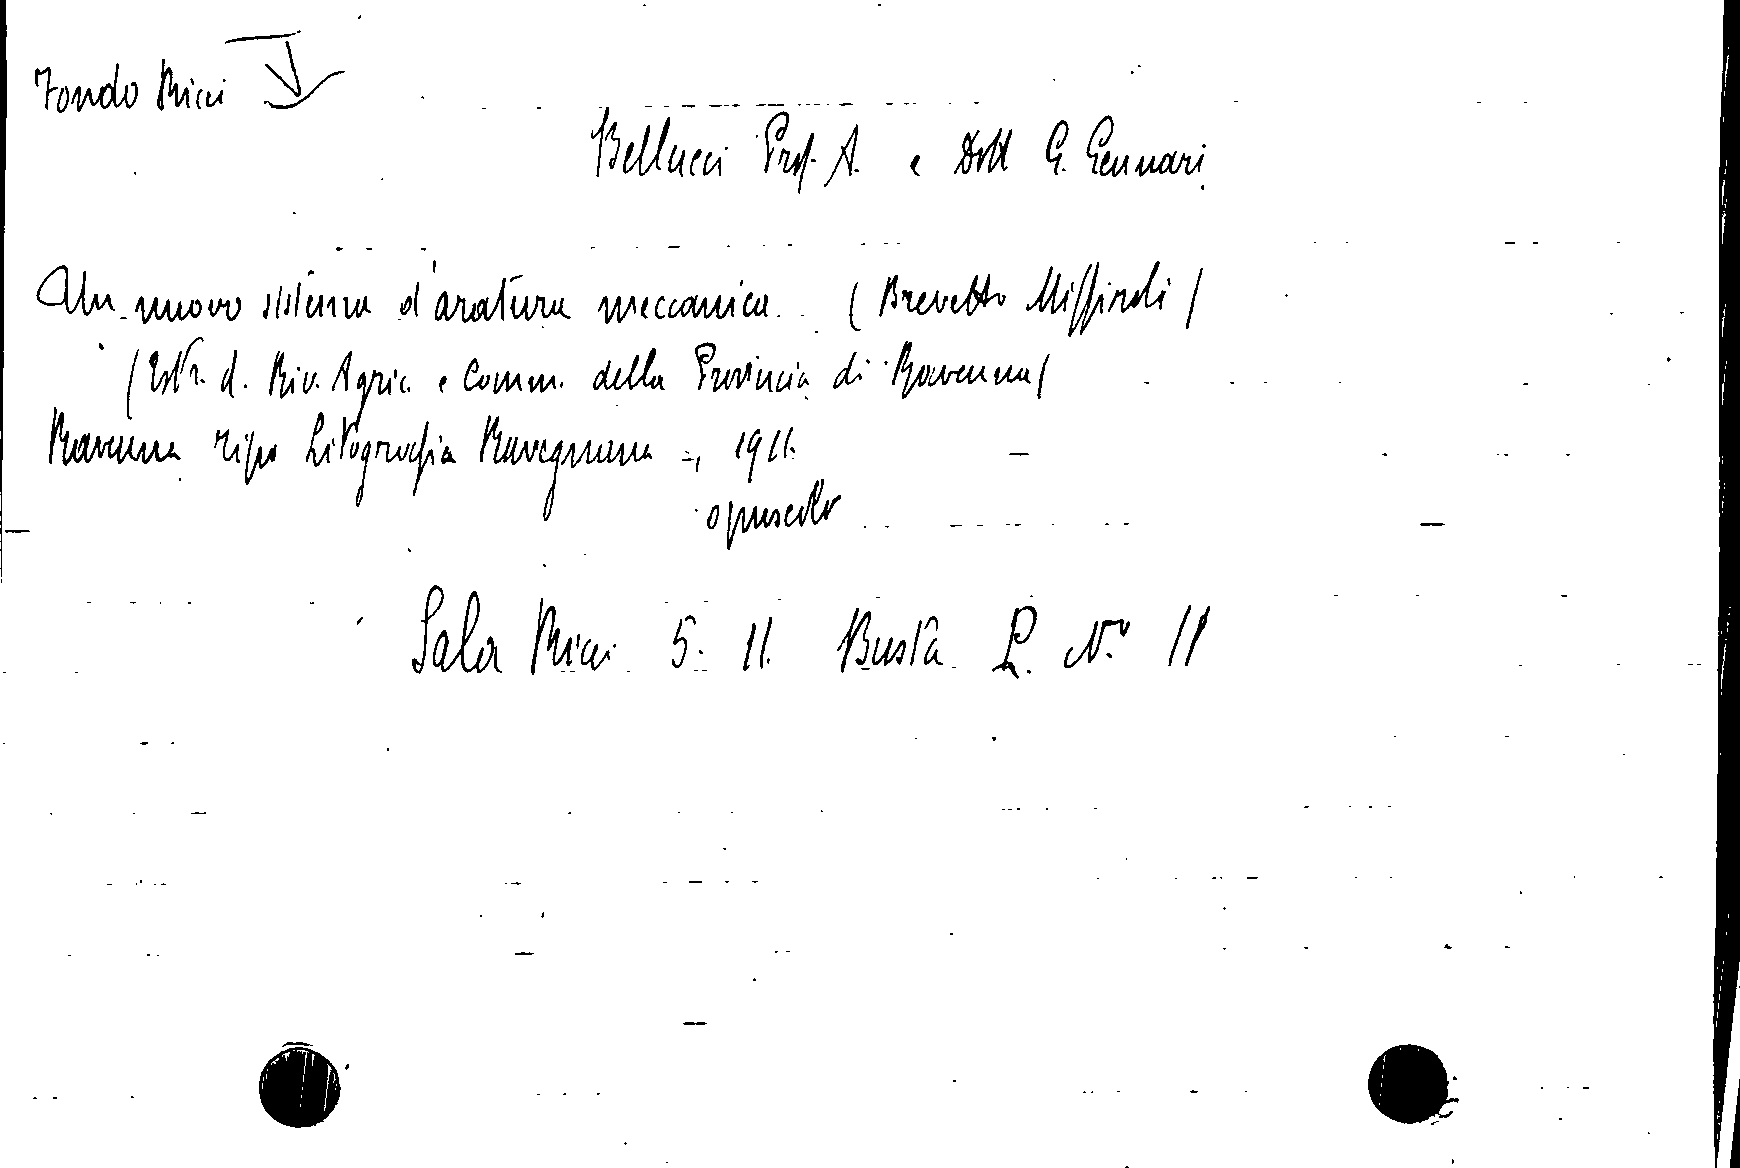 Fondo Ricci
Bellucci Prof. A. e Dott G. Gennari
Un nuovo sistema d'aratura meccanica. (Brevetto Miffiroli)
(Estr. d. Riv. Agric. e Comm. della Provincia di Ravenna)
Ravenna Tipo Litografia Ravegnana -, 1911.
opuscolo
Sala Ricci 5. 11. Busta L. N.o 11